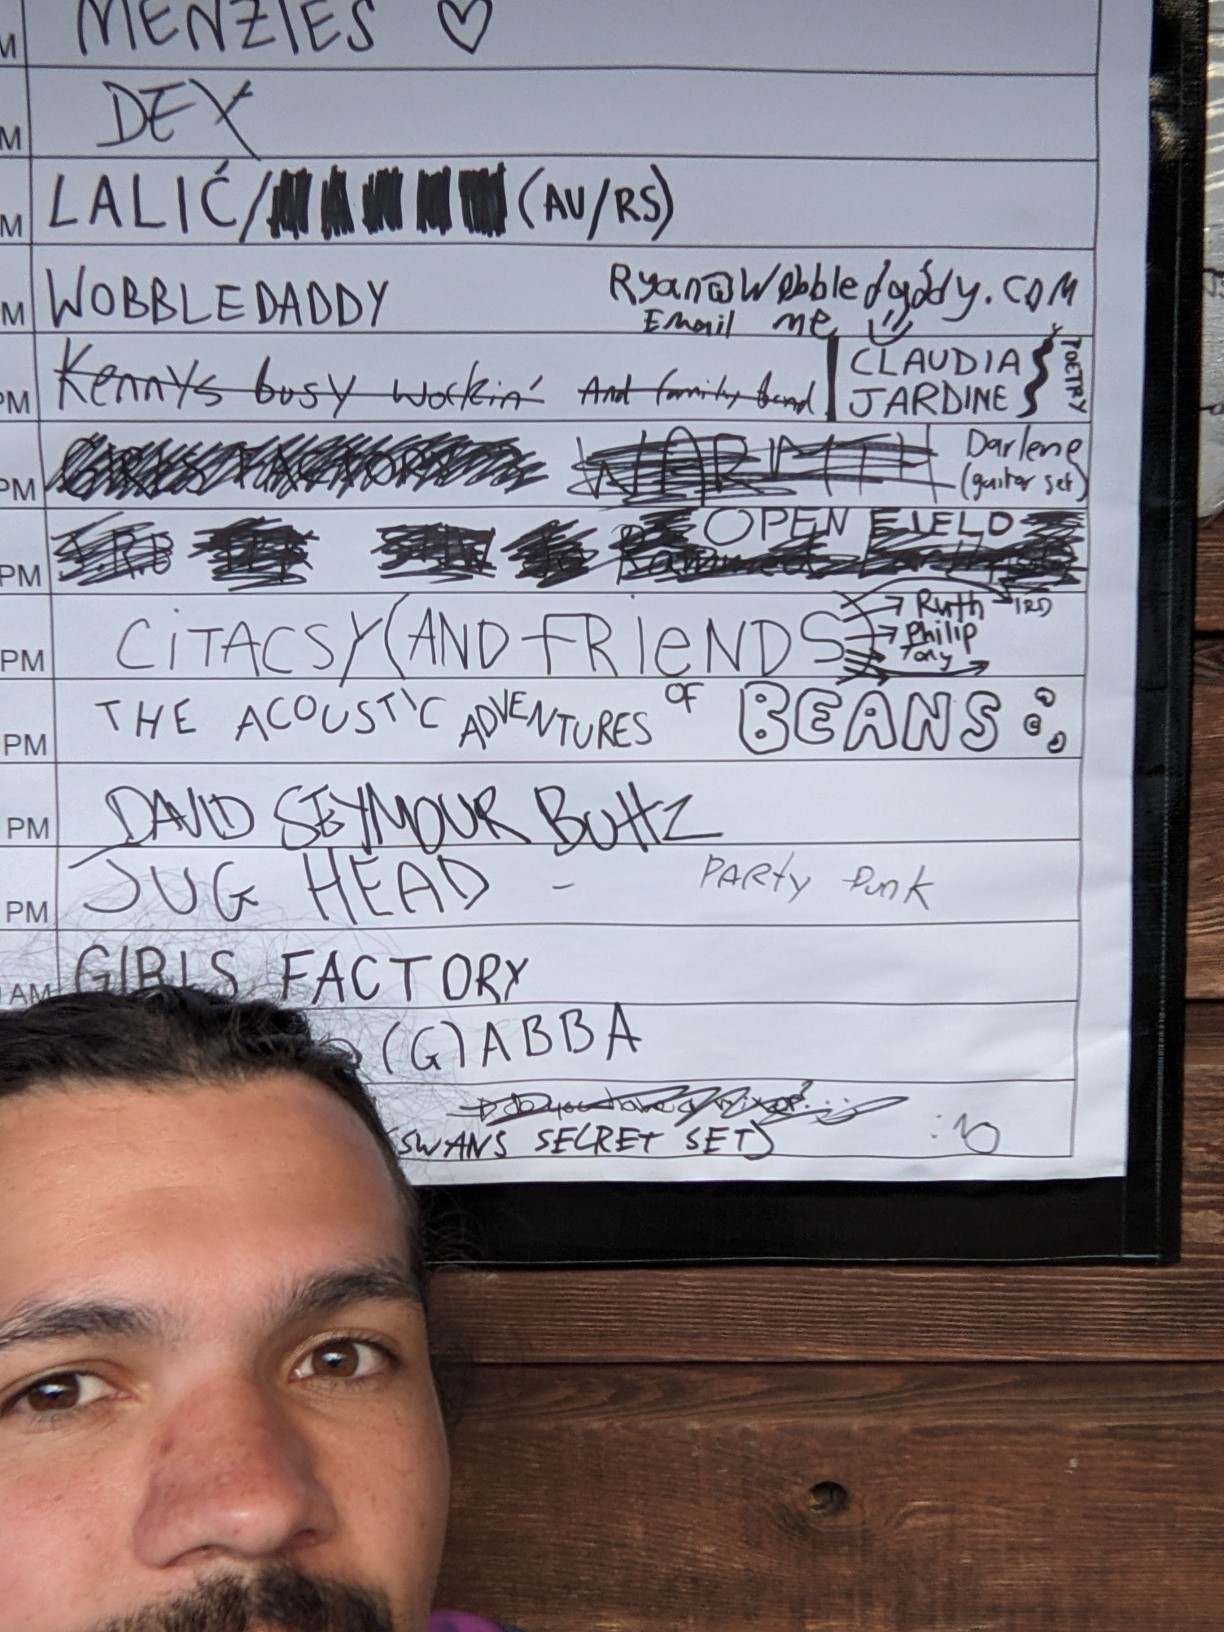 M MENZIES ♡
M DEX
M LALIĆ/ (AV/RS)
M WOBBLEDADDY Ryan@Wobbledaddy.com
Email me
PM Kennys busy workin' And family band CLAUDIA JARDINE } POETRY
PM GIRLS FACTORY WARMTH Darlene (guitar set)
PM J.R.B OPEN FIELD
PM CiTACSY (AND FRIeNDS) → Ruth
→ Philip
Tony
PM THE ACOUSTIC ADVENTURES OF BEANS
PM DAVID SEYMOUR BUttZ
PM JUG HEAD - PARty Punk
AM GIRLS FACTORY
(G)ABBA
Do you have a mixer?
(SWANS SECRET SET)